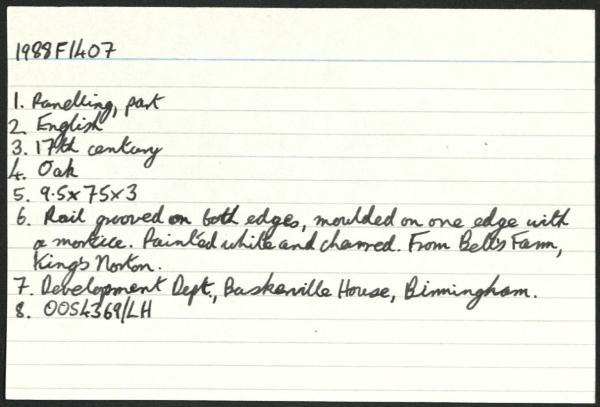 1988F1407
1. Panelling, part
2. English
3. 17th century
4. Oak
5. 9.5x75x3
6. Rail grooved on both edges, moulded on one edge with
a mortice. Painted white and charred. From Bell's Farm,
King's Norton.
7. Development Dept., Baskerville House, Birmingham.
8. OOS4369/LH